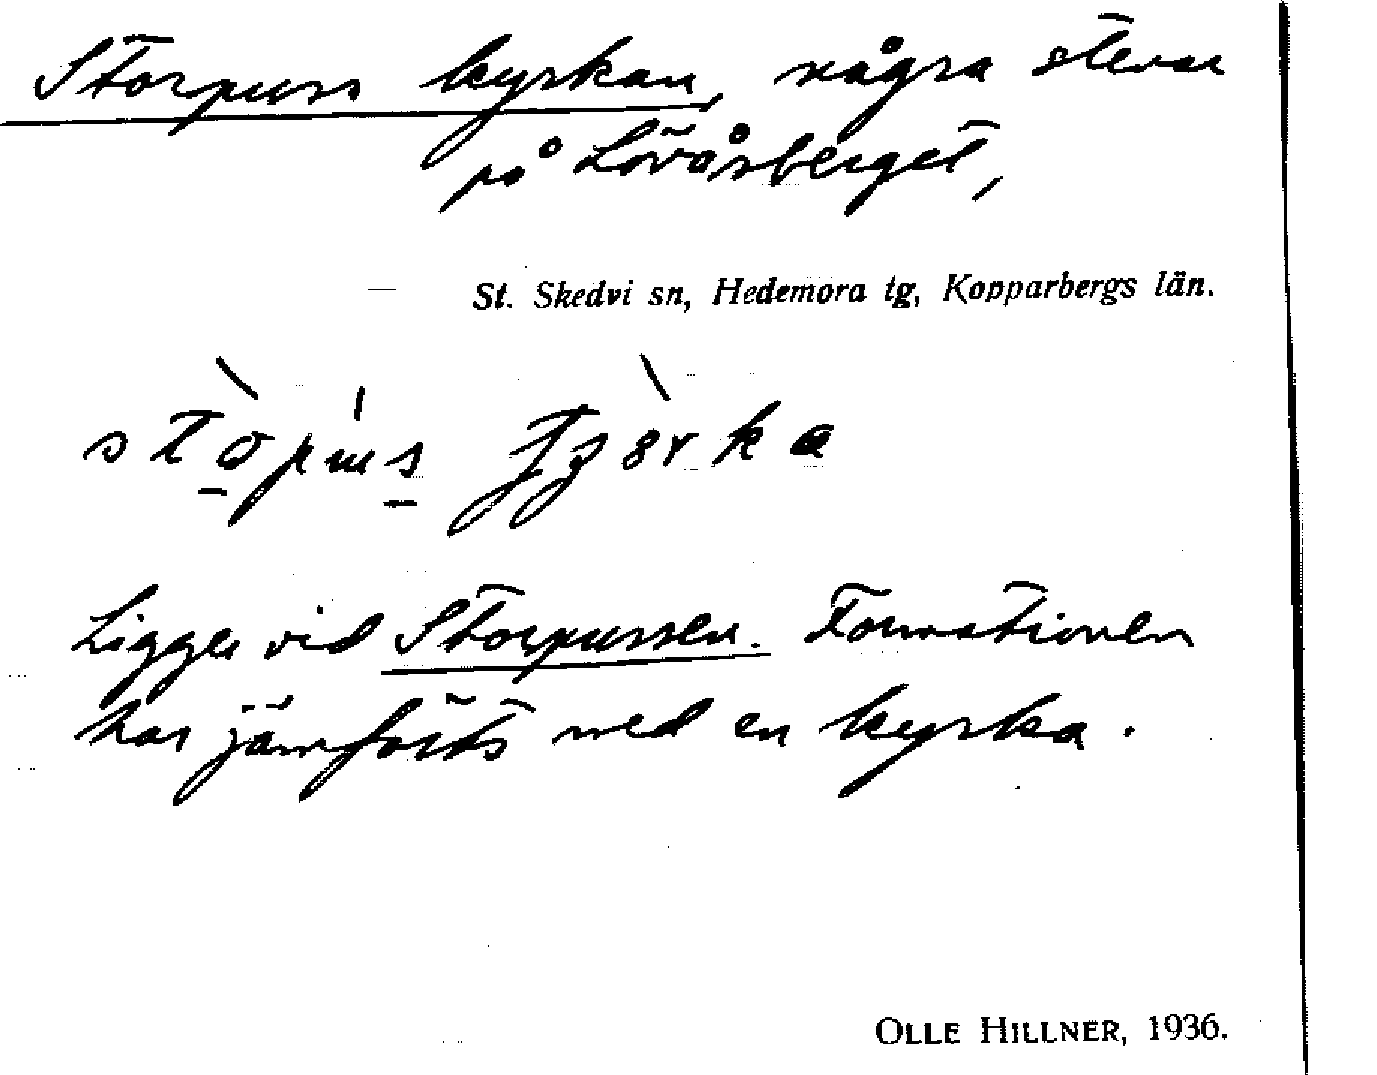 Storpuss kyrkan, några stenar
på Lövåsberget,
St. Skedvi sn, Hedemora tg, Kopparbergs län.
Ligger vid Storpussen. Formationen
har jämförts med en kyrka.
OLLE HILLNER, 1936.